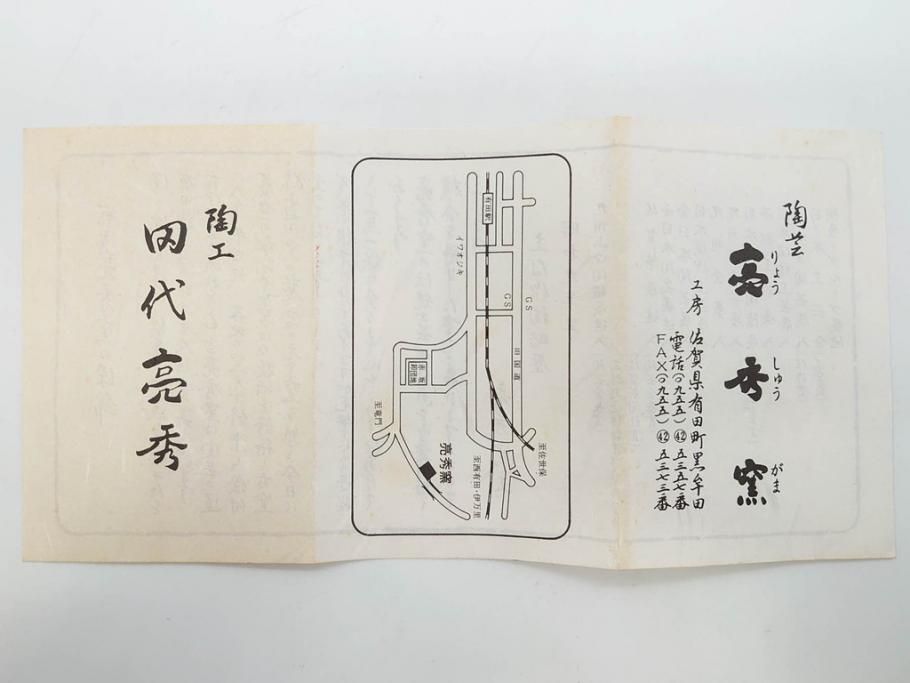 陶芸
亮秀窯
りょう しゅう がま
工房 佐賀県有田町黒牟田
電話(〇九五五)㊷五三五七番
FAX(〇九五五)㊷五三七三番
有田駅
イワオジキ
GS
GS
旧国道
赤坂
卸団地
至竜門
亮秀窯
至佐世保
至西有田・伊万里
陶工
田代亮秀